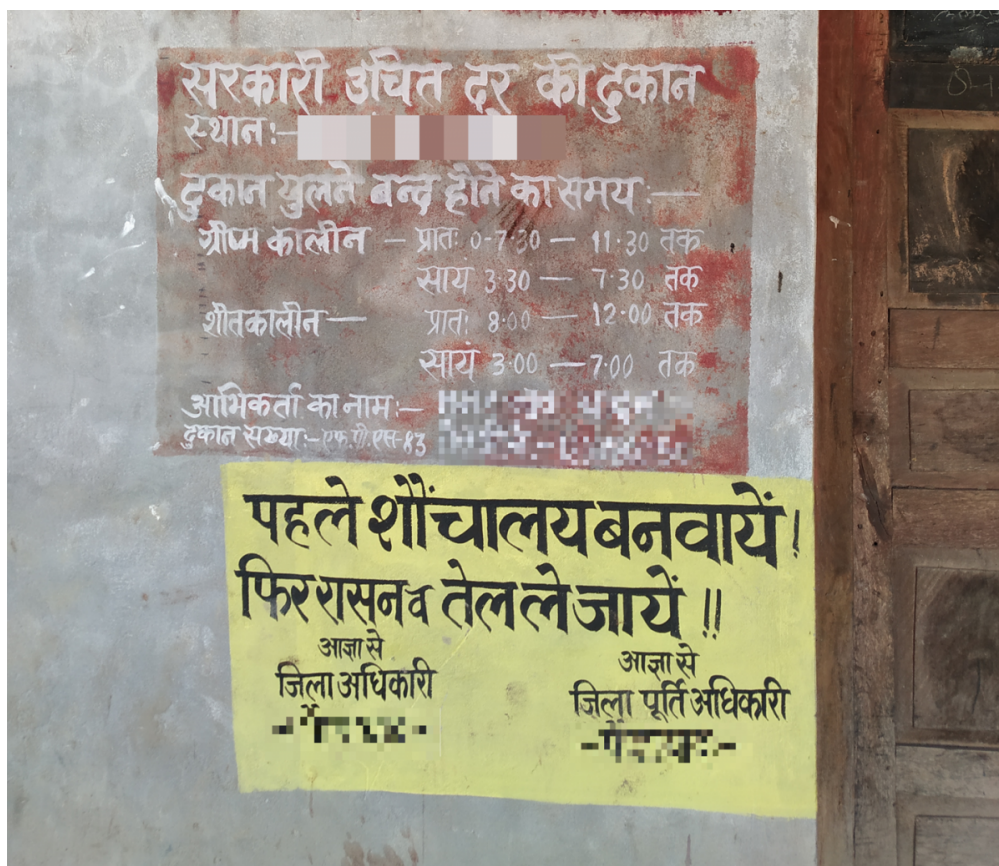 सरकारी उचित दर की दुकान
स्थान:-
दुकान खुलने बन्द होने का समय:—
ग्रीष्म कालीन — प्रातः 0-7.30 — 11.30 तक
सायं 3.30 — 7.30 तक
शीतकालीन — प्रातः 8.00 — 12.00 तक
सायं 3.00 — 7.00 तक
आभिकर्ता का नाम:-
दुकान सख्या:-एफ.पी.एस-83
पहले शौंचालय बनवायें!
फिर रासन व तेल ले जायें !!
आज्ञा से
जिला अधिकारी
आज्ञा से
जिला पूर्ति अधिकारी